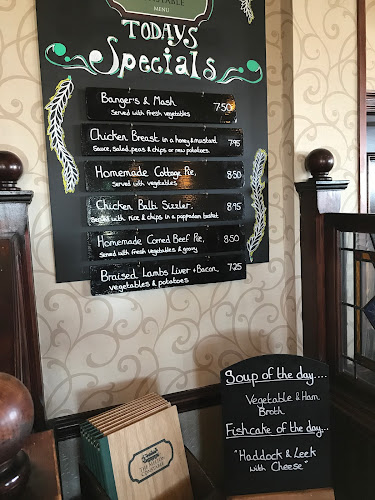 MENU
TODAYS
Specials
Bangers & Mash 7.50
Served with fresh vegetables
Chicken Breast in a honey & mustard 7.95
Sauce, salad, peas & chips or new potatoes.
Homemade Cottage Pie, 8.50
Served with vegetables
Chicken Balti Sizzler, 8.95
Served with rice & chips in a poppadom basket
Homemade Corned Beef Pie, 8.50
Served with fresh vegetables & gravy
Braised Lambs Liver & Bacon, 7.25
vegetables & potatoes
Soup of the day....
Vegetable & Ham
Broth
Fishcake of the day...
"Haddock & Leek
with Cheese"